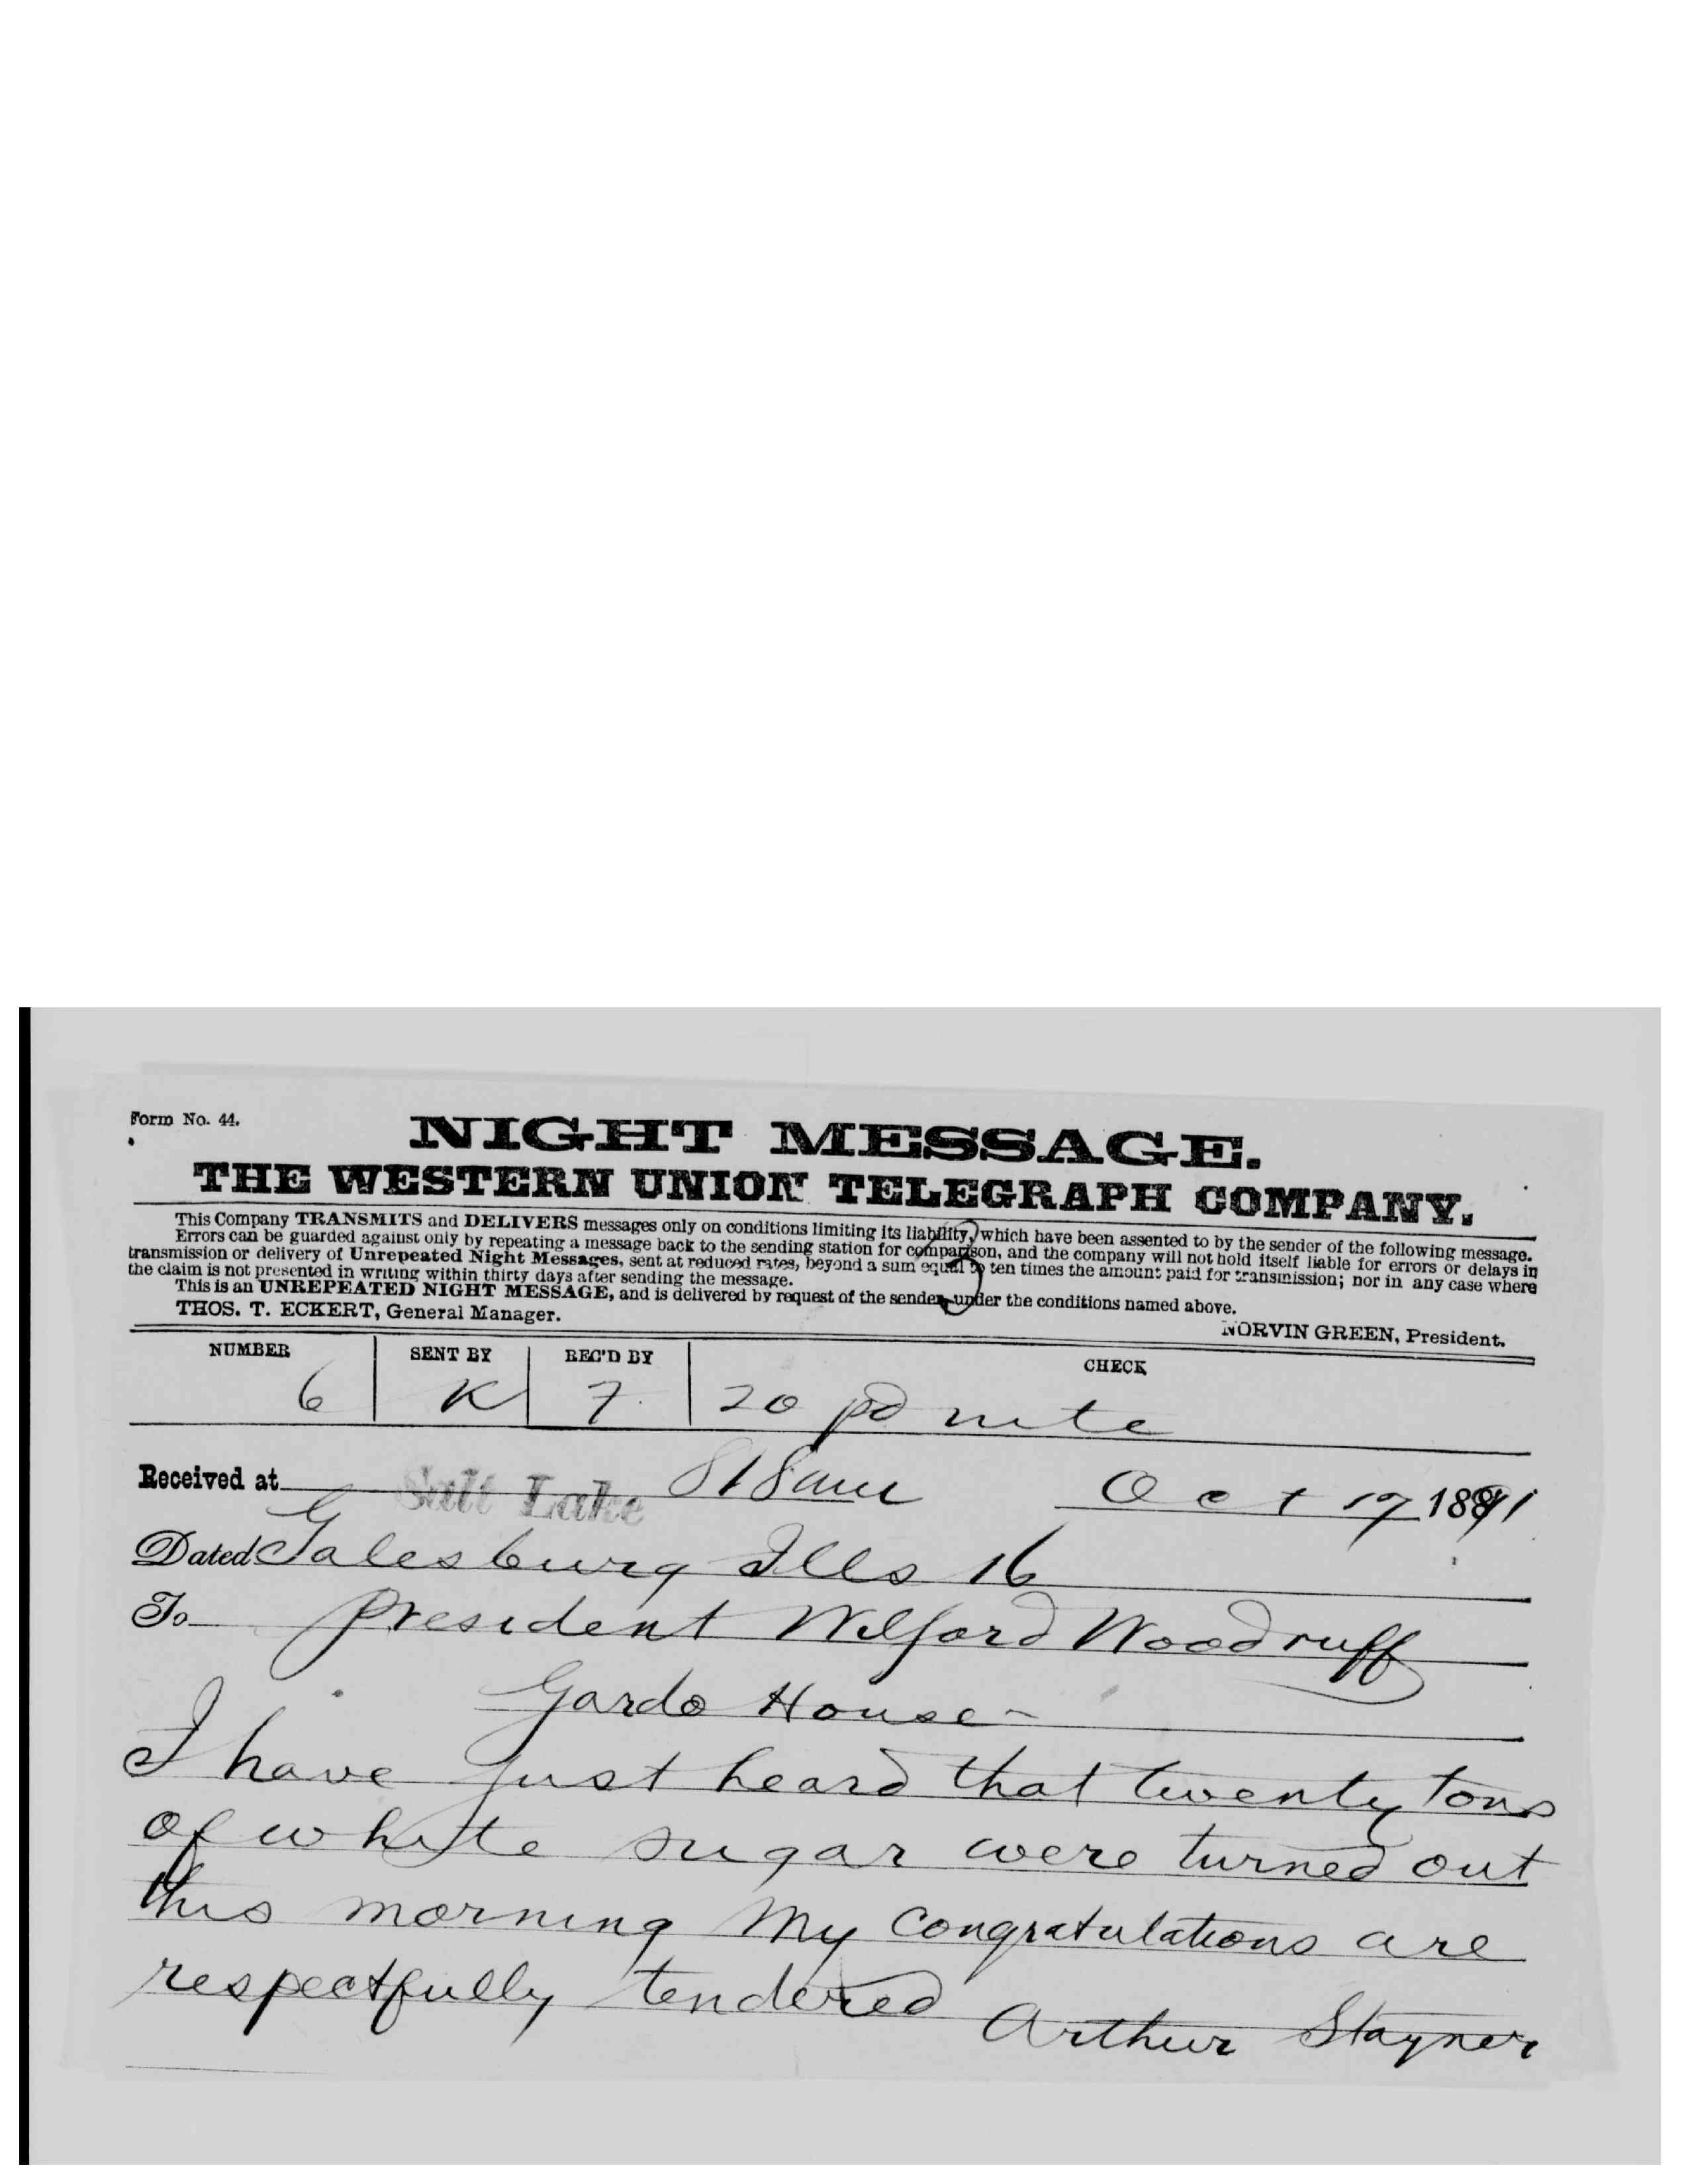 Form No. 44.
NIGHT MESSAGE.
THE WESTERN UNION TELEGRAPH COMPANY.
This Company TRANSMITS and DELIVERS messages only on conditions limiting its liability, which have been assented to by the sender of the following message.
Errors can be guarded against only by repeating a message back to the sending station for comparison, and the company will not hold itself liable for errors or delays in
transmission or delivery of Unrepeated Night Messages, sent at reduced rates, beyond a sum equal to ten times the amount paid for transmission; nor in any case where
the claim is not presented in writing within thirty days after sending the message.
This is an UNREPEATED NIGHT MESSAGE, and is delivered by request of the sender under the conditions named above.
THOS. T. ECKERT, General Manager.
NORVIN GREEN, President.
NUMBER SENT BY REC'D BY CHECK
6 K 7 20 pd nite
Received at Salt Lake 818am Oct 17 1891
Dated Galesburg Ills 16
To President Wilford Woodruff
Gardo House-
I have just heard that twenty tons
of white sugar were turned out
this morning My Congratulations are
respectfully tendered
Arthur Stayner